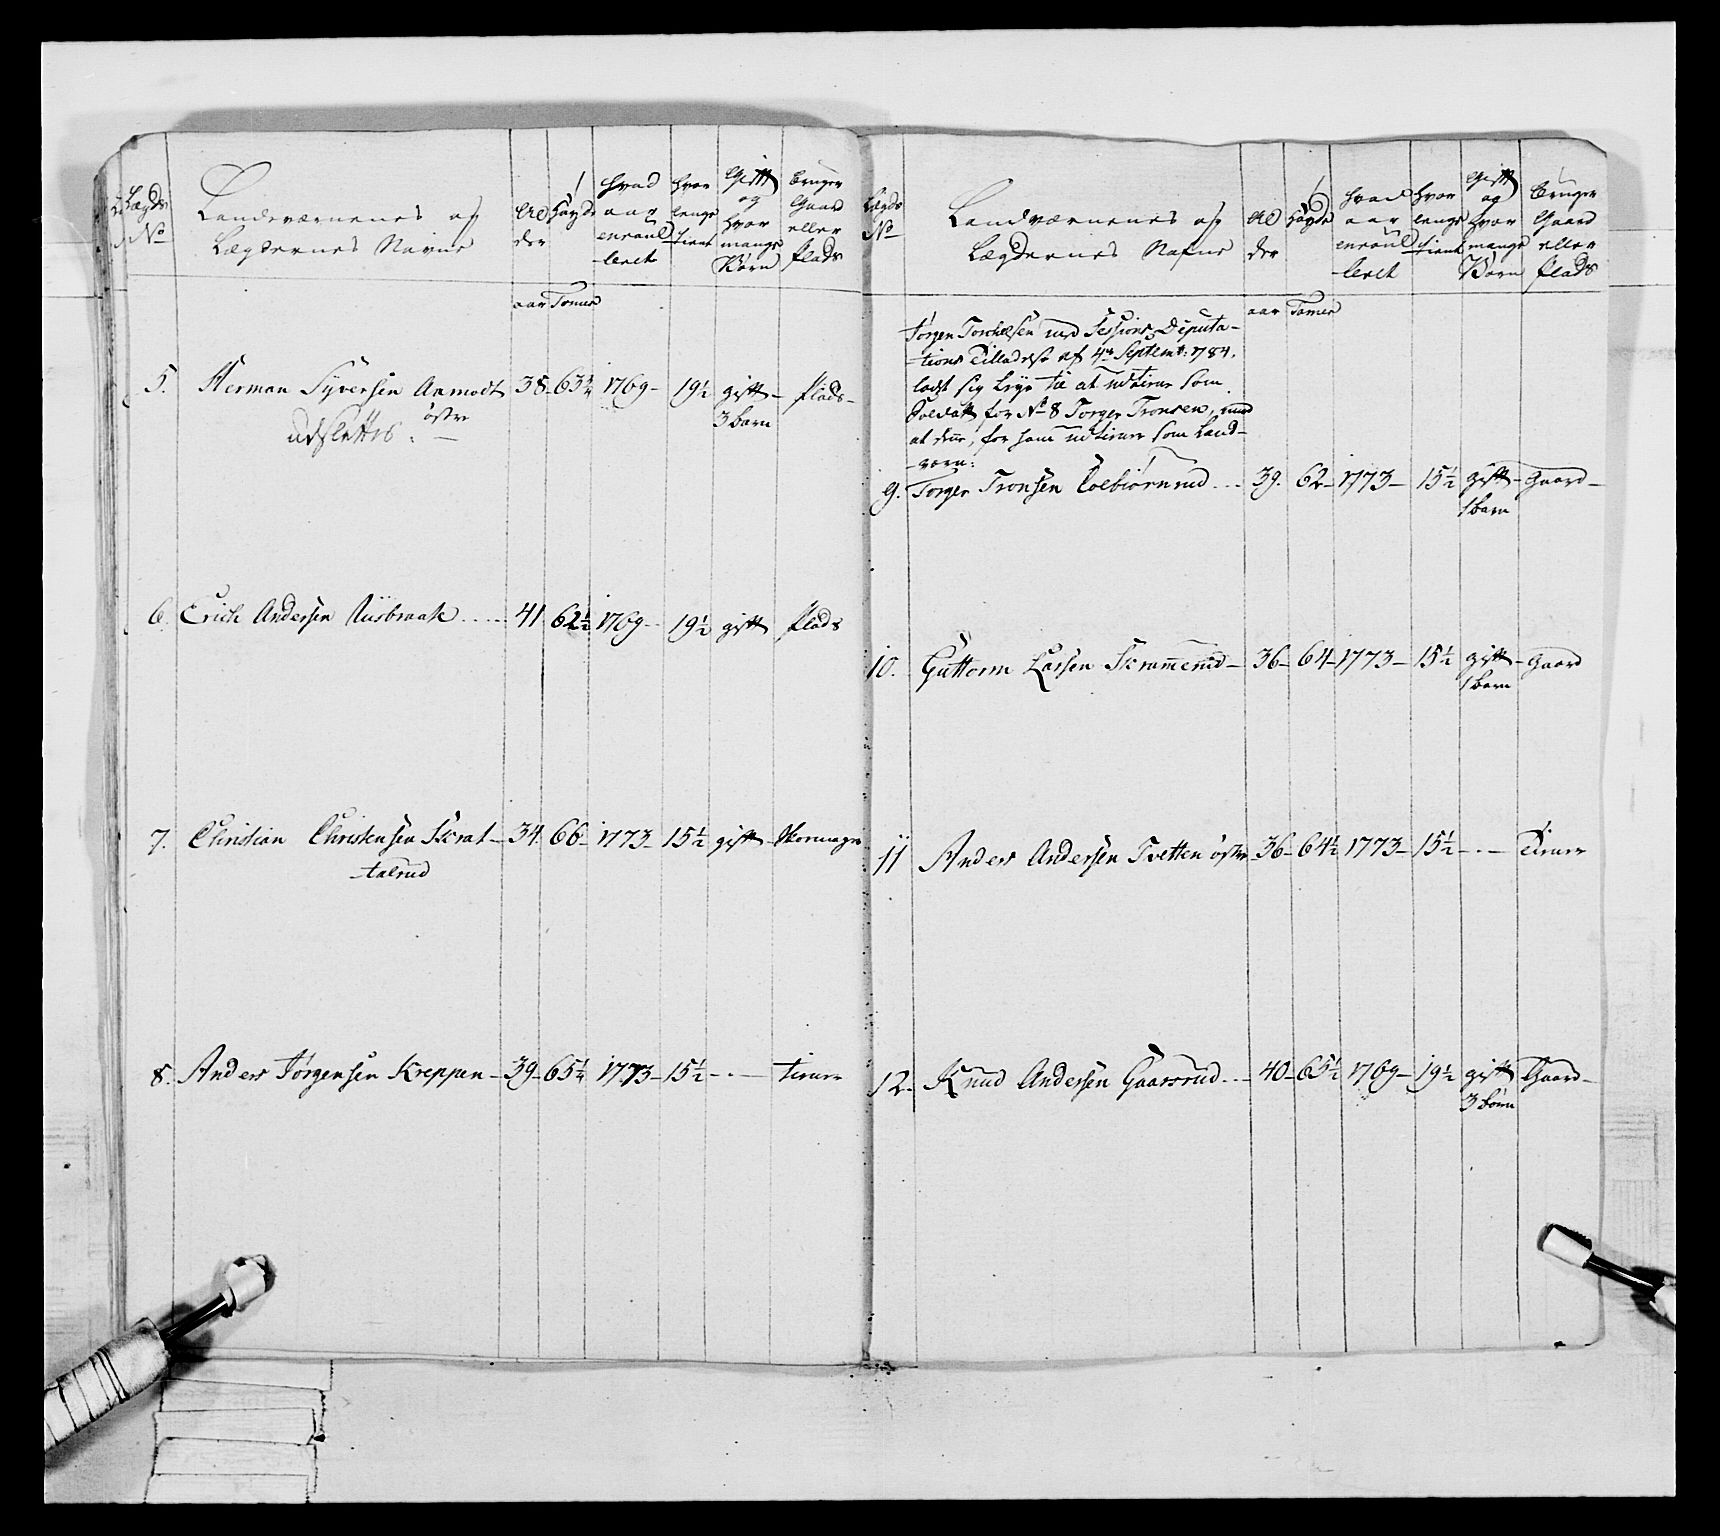 Lægds No
Landeværnenes og Lægdernes Navne
Alder
Høyde
hvad aar enroulleret
hvor lenge tient
Gift og hvor mange Børn
bruger Gaard eller Plads
aar Tomer
5. Herman Syversen Aamodt 38. 63 1769 19½ gift plads
østre 3 barn
udslettes.
6. Erich Andersen 41 62½ 1769 19½ gift plads
7. Christian Christensen Skrat- 34. 66 1773 15½ gift
-talrud
8. Anders Jørgensen Kreppen 39 65½ 1773 15½ tiener
Lægds No
Landværnenes og Lægdernes Nafne
Alder
Høyde
hvad aar enroulleret
hvor lenge tient
Gift og hvor mange Børn
bruger Gaard eller Plads
aar Tomer
Jørgen Torchelsen ved Sessions Deputa-
-tions Tilladelse af 4de Septembr: 1784,
ladt sig leye til at udtiene som
Soldatt for No 8 Torger Tronsen, med
at denne, for ham udtiener som Land-
-værn:
9. Torger Tronsen Colbiørnrud 39. 62 1773 15½ gift Gaard
1 barn
10. Guttorm Larsen Skramerud 36 64 1773 15½ gift Gaard
1 barn
11 Anders Andersen Tvetten østre 36 64½ 1773 15½ Tiener
12. Knud Andersen Gaarsrud 40 65½ 1769 19½ gift Gaard
3 børn